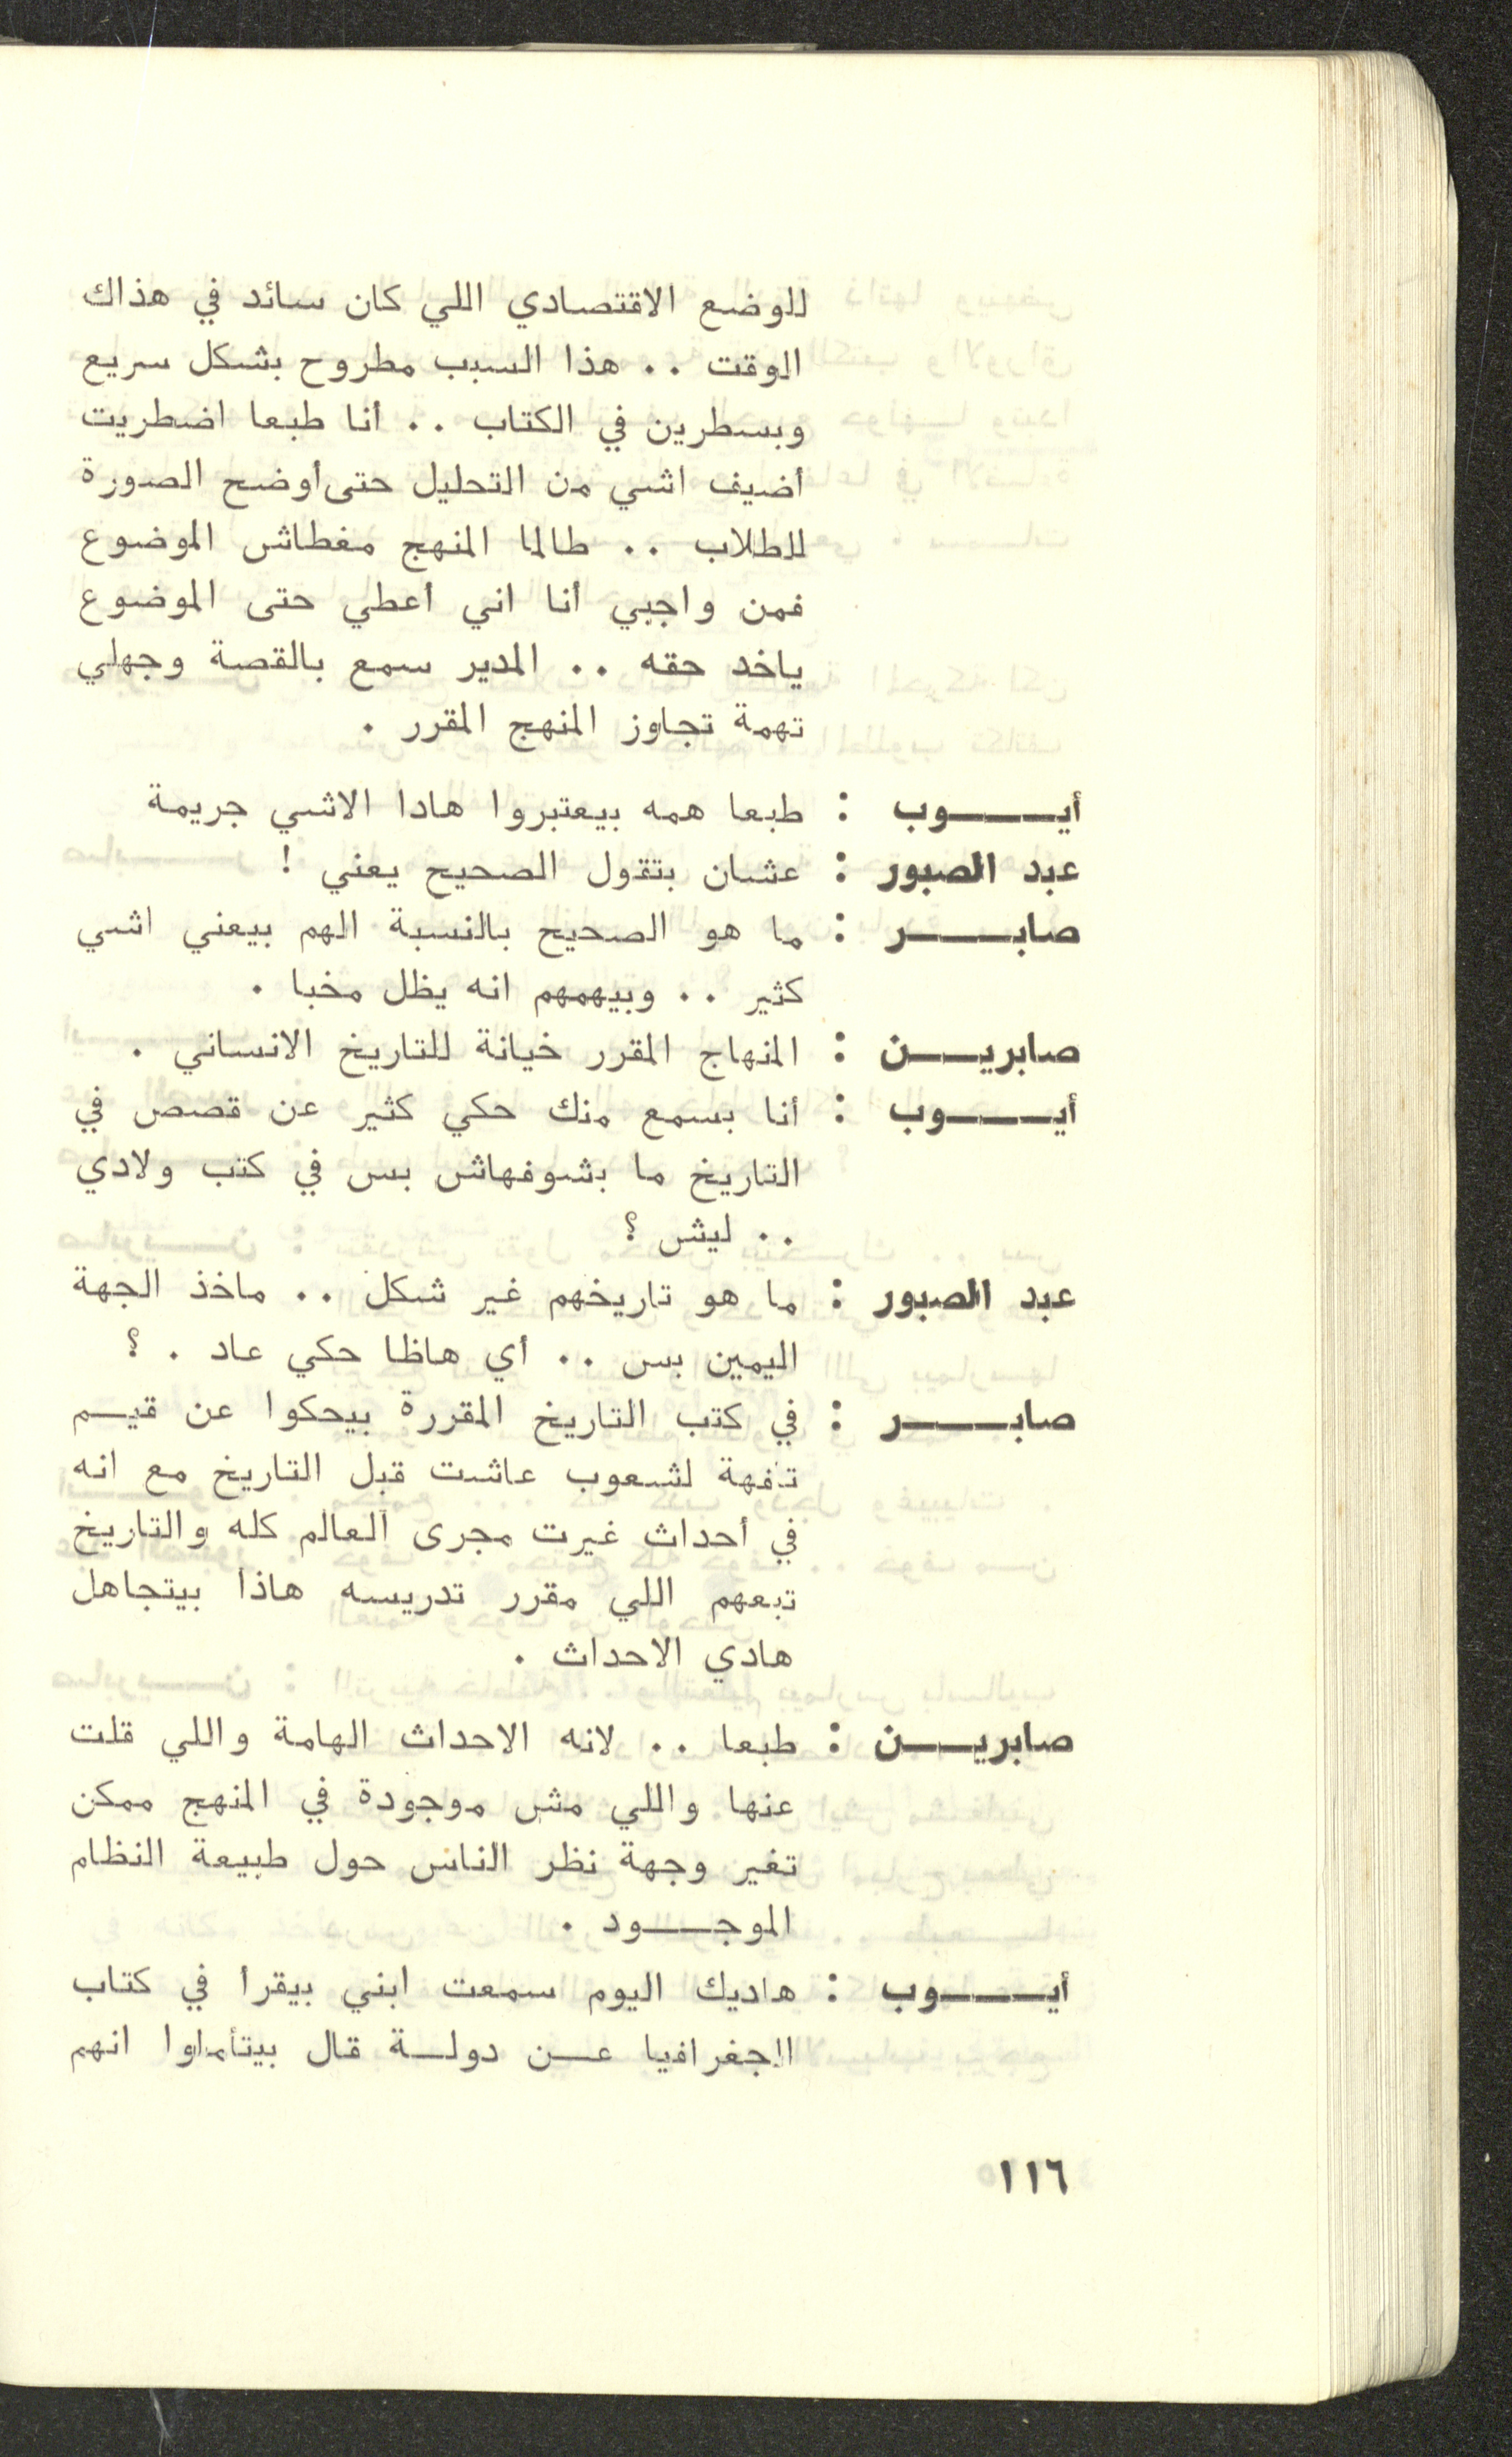 للوضع الاقتصادي اللي كان سائد في هذاك
الوقت .. هذا السبب مطروح بشكل سريع
وبسطرين في الكتاب .. أنا طبعا اضطريت
أضيف اشي من التحليل حتى أوضح الصورة
للطلاب .. طالما المنهج مغطاش الموضوع
فمن واجبي أنا اني أعطي حتى الموضوع
ياخد حقه .. المدير سمع بالقصة وجهلي
تهمة تجاوز المنهج المقرر .
أيـــــوب : طبعا همه بيعتبروا هادا الاشي جريمة
عبد الصبور : عشان بتقول الصحيح يعني !
صابـــــر : ما هو الصحيح بالنسبة الهم بيعني اشي
كثير .. وبيهمهم انه يظل مخبا .
صابريـــن : المنهاج المقرر خيانة للتاريخ الانساني .
أيـــــوب : أنا بسمع منك حكي كثير عن قصص في
التاريخ ما بشوفهاش بس في كتب ولادي
.. ليش ؟
عبد الصبور : ما هو تاريخهم غير شكل .. ماخذ الجهة
اليمين بس .. أي هاظا حكي عاد . ؟
صابـــــر : في كتب التاريخ المقررة بيحكوا عن قيـم
تفهة لشعوب عاشت قبل التاريخ مع انه
في أحداث غيرت مجرى العالم كله والتاريخ
تبعهم اللي مقرر تدريسه هاذا بيتجاهل
هادي الاحداث .
صابريـــن : طبعا .. لانه الاحداث الهامة واللي قلت
عنها واللي مش موجودة في المنهج ممكن
تغير وجهة نظر الناس حول طبيعة النظام
الموجـــود .
أيـــــوب : هاديك اليوم سمعت ابني بيقرأ في كتاب
الجغرافيا عــن دولــة قال بيتأملوا انهم
١١٦